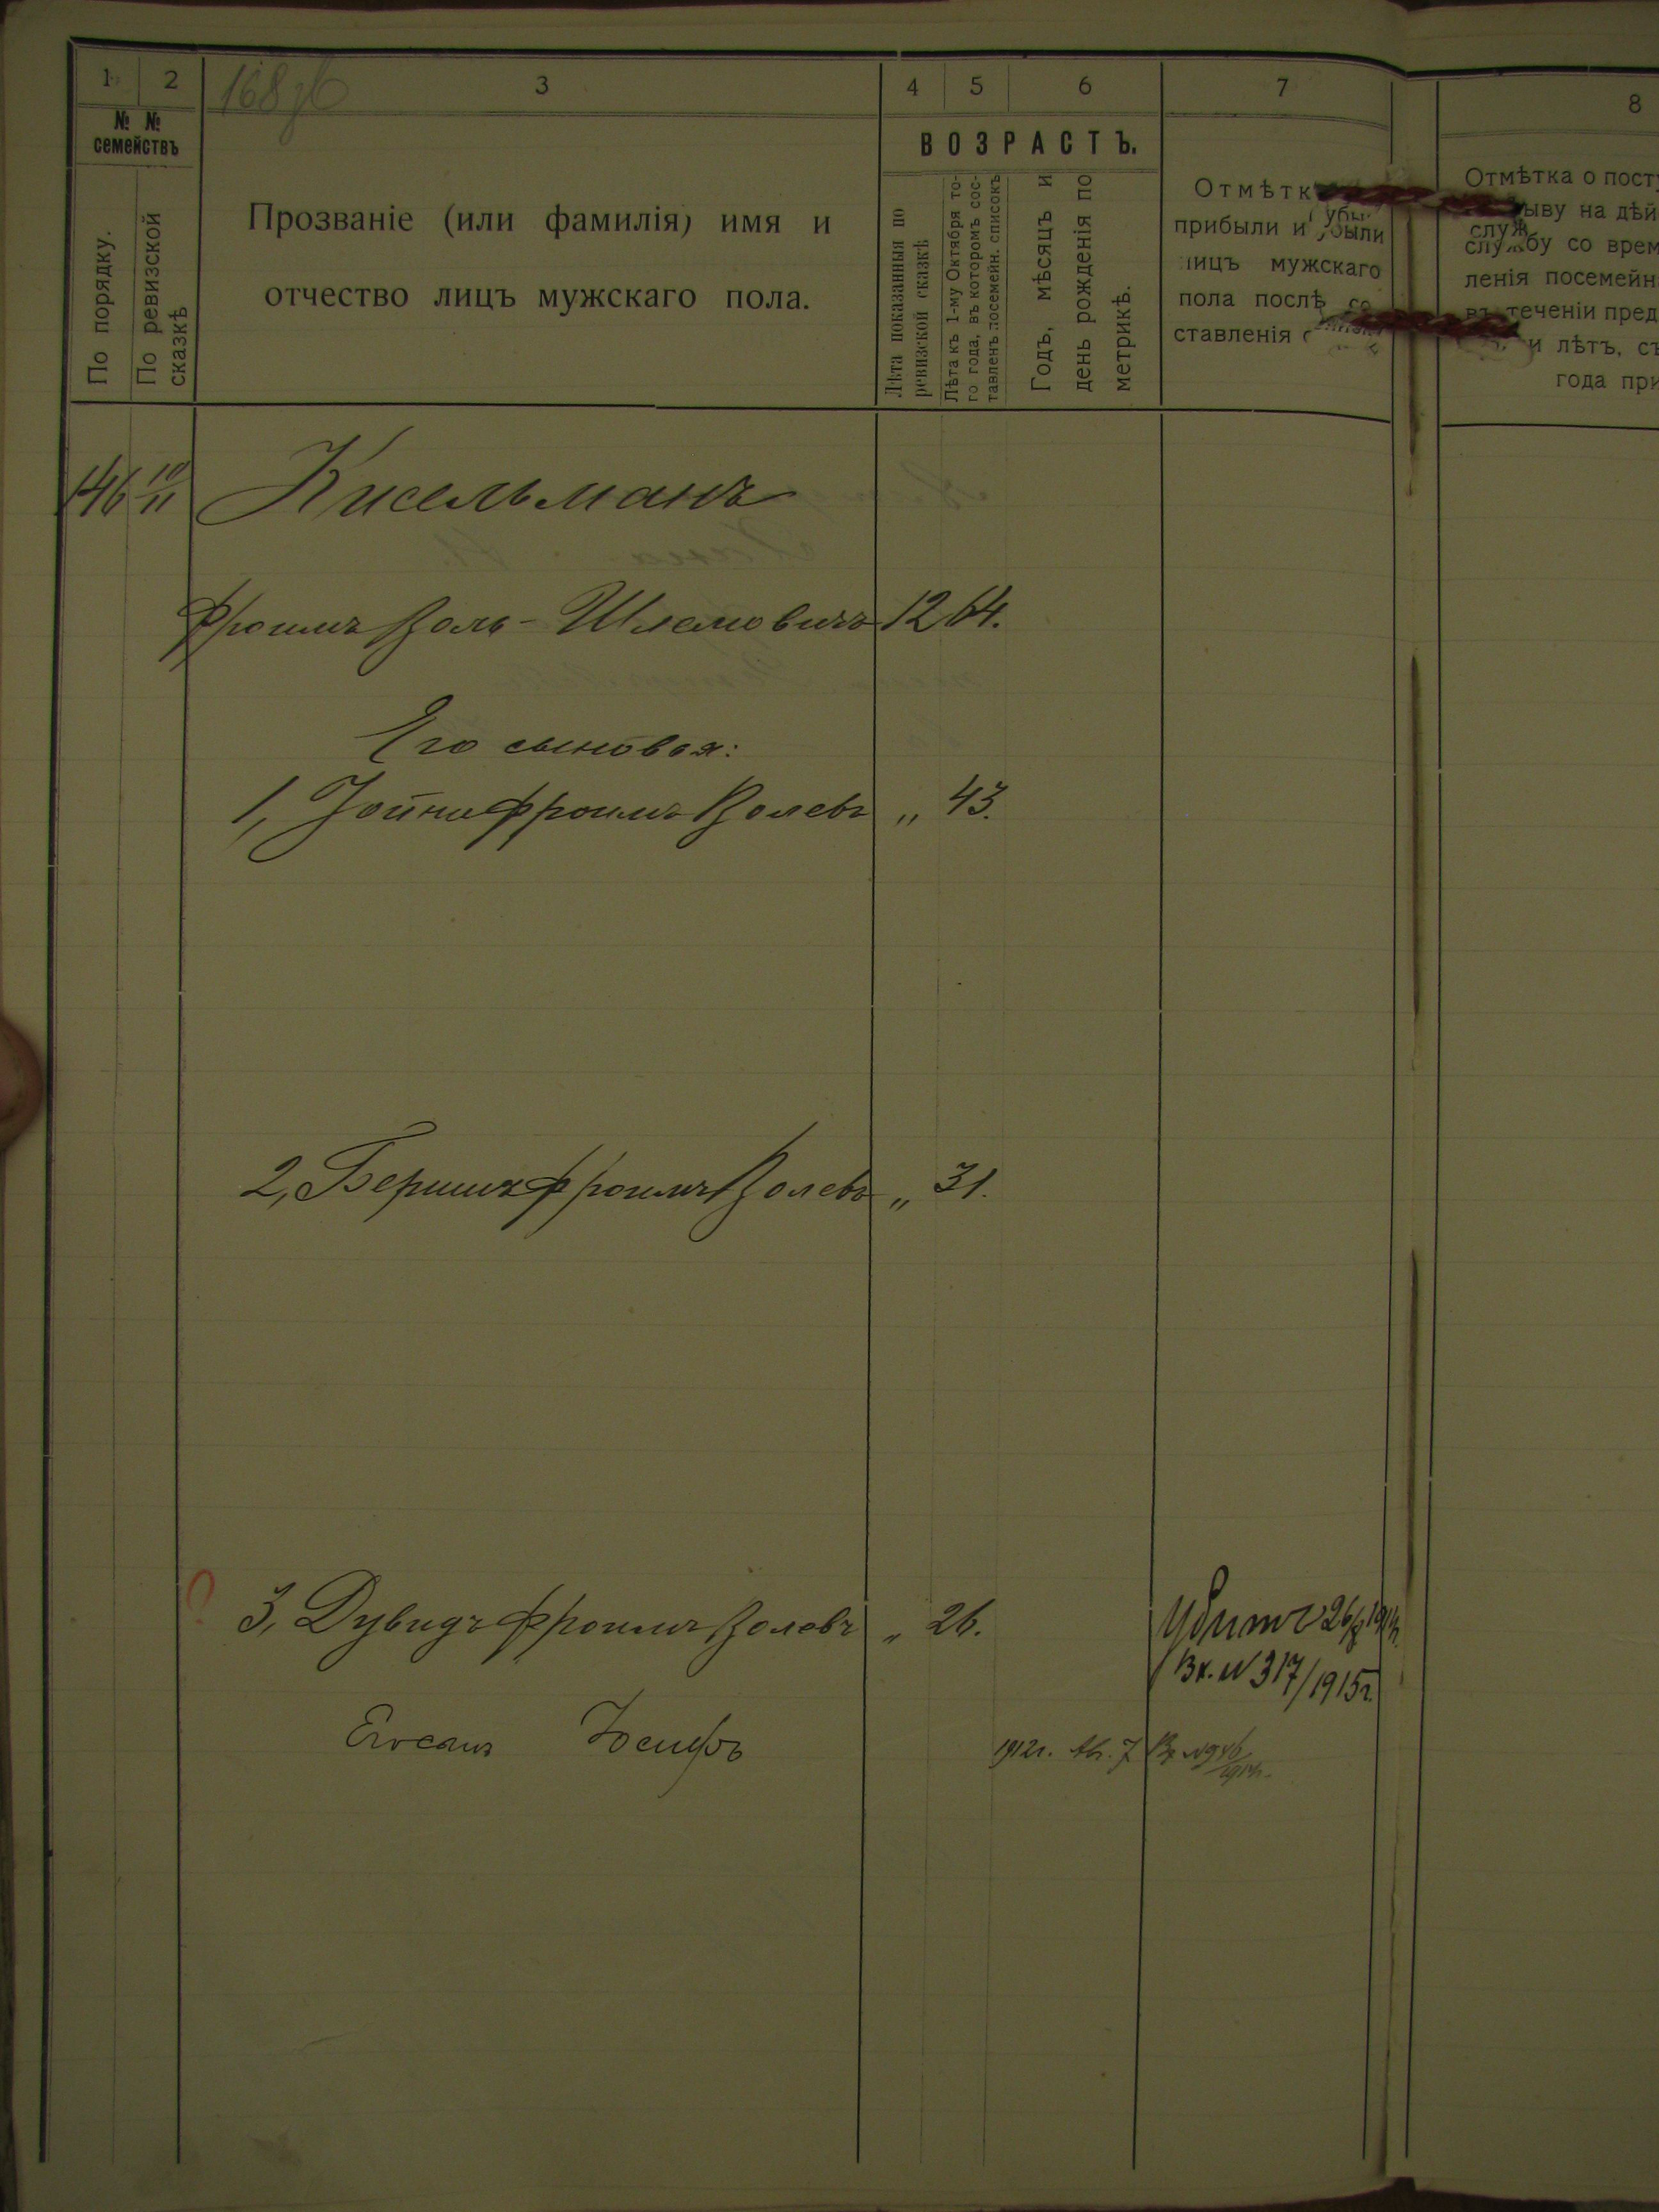 1 2 3 4 5 6 7 8
168
№ № семействъ
По порядку.
По ревизской сказкѣ
Прозваніе (или фамилія) имя и
отчество лицъ мужскаго пола.
ВОЗРАСТЪ.
Лѣта показанныя по
ревизской сказкѣ
Лѣта къ 1-му Октября то-
го года, въ которомъ сос-
тавленъ посемейн. списокъ
Годъ, мѣсяцъ и
день рожденія по
метрикѣ.
Отмѣтк
прибыли и убыли
лицъ мужскаго
пола послѣ со
ставленія
Отмѣтка о пост
ыву на дѣй
службу со врем
ленія посемейн
въ теченіи пред
и лѣтъ, съ
года при
146 10/11 Кисельманъ
Фроимъ Волъ-Шлемовичъ 12 64.
Его сыновья:
1, Іойна Фроимъ Волевъ „ 43.
2, Бершъ Фроимъ Волевъ „ 31.
3, Дувидъ Фроимъ Волевъ „ 26. Убитъ 26/8 1914г.
Вх. № 317/1915г.
Его сынъ Іосифъ 1912г. Ав. 7 Вх №946/1914г.